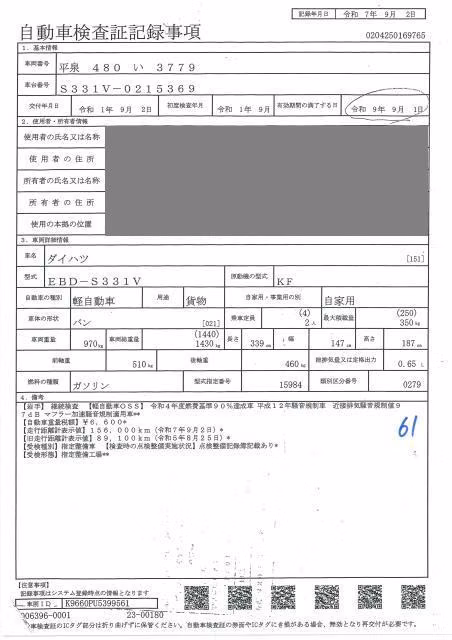 記録年月日 令和 7年 9月 2日
自動車検査証記録事項
0204250169765
1. 基本情報
車両番号 平泉 480 い 3779
車台番号 S331V-0215369
交付年月日 令和 1年 9月 2日 初度検査年月 令和 1年 9月 有効期間の満了する日 令和 9年 9月 1日
2. 使用者・所有者情報
使用者の氏名又は名称
使用者の住所
所有者の氏名又は名称
所有者の住所
使用の本拠の位置
3. 車両詳細情報
車名 ダイハツ [151]
型式 EBD-S331V 原動機の型式 KF
自動車の種別 軽自動車 用途 貨物 自家用・事業用の別 自家用
車体の形状 バン [021] 乗車定員 (4) 2人 最大積載量 (250) 350kg
車両重量 970kg 車両総重量 (1440) 1430kg 長さ 339cm 幅 147cm 高さ 187cm
前軸重 510kg 後軸重 460kg 総排気量又は定格出力 0.65 L
燃料の種類 ガソリン 型式指定番号 15984 類別区分番号 0279
4. 備考
【岩手】 継続検査 【軽自動車OSS】 令和4年度燃費基準90%達成車 平成12年騒音規制車 近接排気騒音規制値9
7dB マフラー加速騒音規制適用車**
【自動車重量税額】¥6,600*
【走行距離計表示値】156,000km(令和7年9月2日)*
【旧走行距離計表示値】89,100km(令和5年8月25日)*
【受検種別】指定整備車 【検査時の点検整備実施状況】点検整備記録簿記載あり*
【受検形態】指定整備工場**
61
【注意事項】
記載事項はシステム登録時点の情報となります
車両ID K9660PU5399561
006396-0001 23-00180
車検査証のICタグ部分は折り曲げずに保管ください。自動車検査証の券面やICタグに記載がある場合、無効となり再交付が必要です。